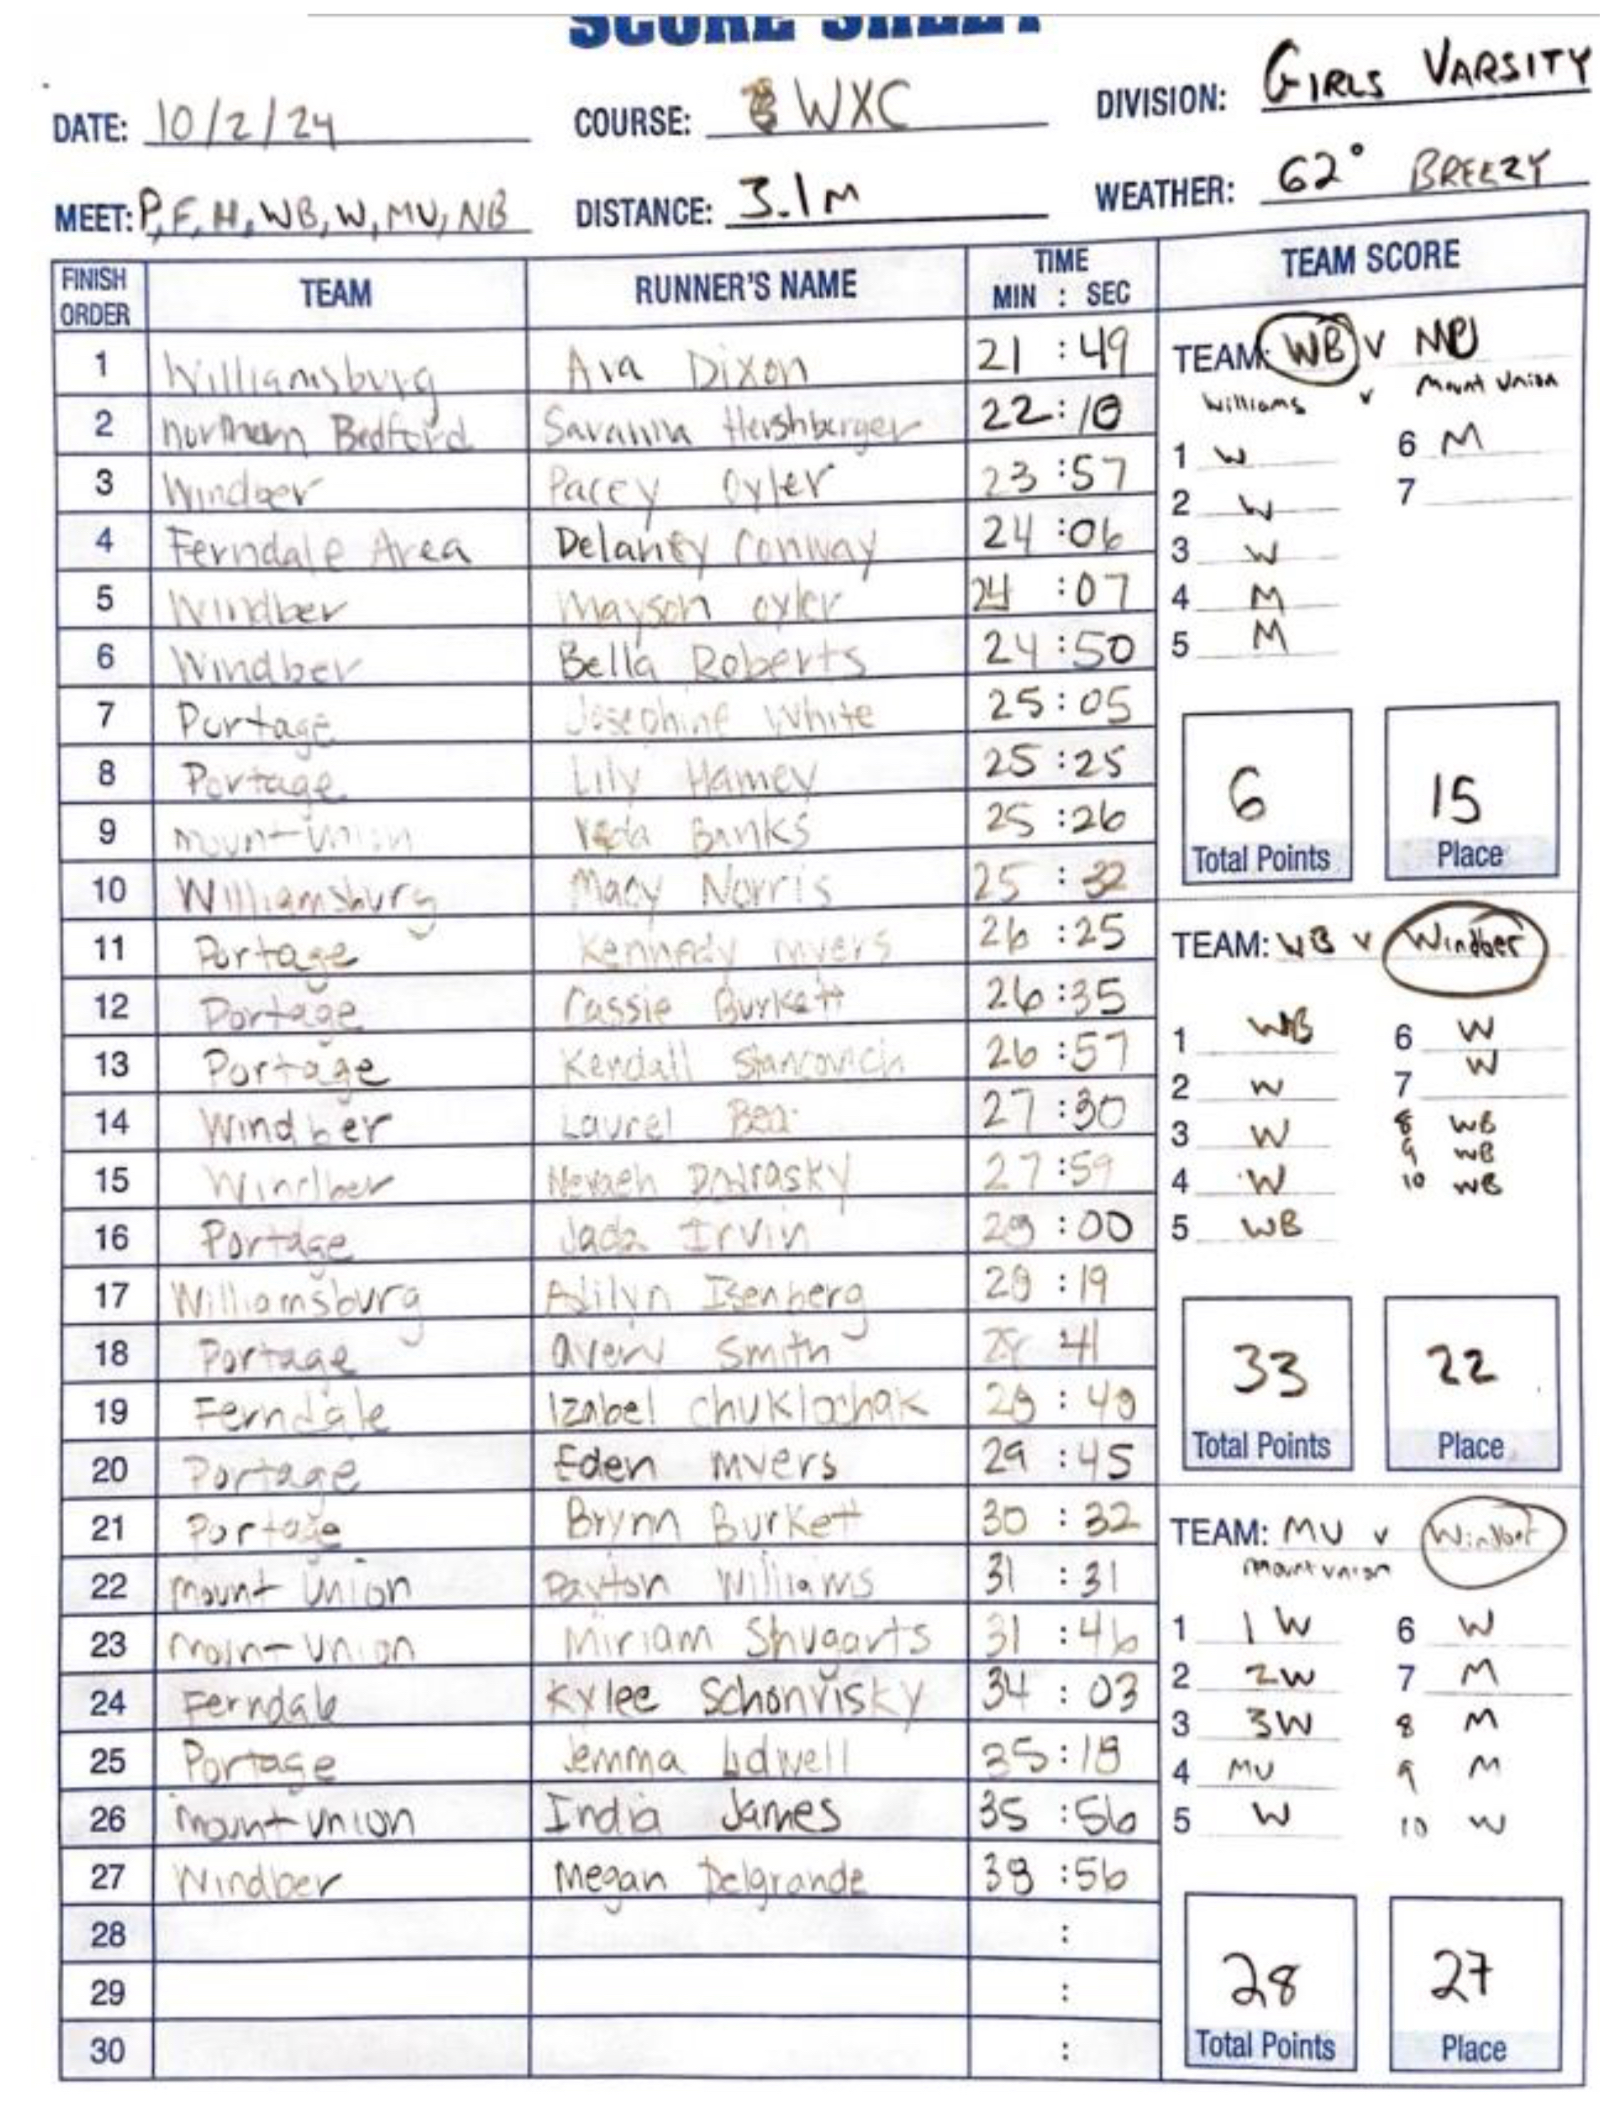 SCORE SHEET
DATE: 10/2/24 COURSE: WXC DIVISION: GIRLS VARSITY
MEET: P, F, H, WB, W, MU, NB DISTANCE: 3.1M WEATHER: 62° BREEZY
FINISH ORDER TEAM RUNNER'S NAME TIME MIN : SEC
1 Williamsburg Ava Dixon 21 :49
2 northern Bedford Savanna Hershberger 22:18
3 Windber Pacey Oyler 23 :57
4 Ferndale Area Delaney Conway 24 :06
5 Windber Mayson oyler 24 :07
6 Windber Bella Roberts 24 :50
7 Portage Josephine White 25: 05
8 Portage Lily Hamey 25 :25
9 mount union Banks 25 :26
10 Williamsburg Macy Norris 25 : 32
11 Portage Kennedy myers 26 :25
12 Portage Cassie Burkett 26:35
13 Portage Kendall Stancovich 26 :57
14 Windber Laurel 27 :30
15 Windber Nevaeh 27 :59
16 Portage Jada Irvin 28 : 00
17 Williamsburg Adilyn Isenberg 28 : 19
18 Portage avery Smith 28 41
19 Ferndale Izabel Chuklochak 28 : 48
20 Portage Eden myers 29 :45
21 Portage Brynn Burkett 30 : 32
22 mount Union Payton Williams 31 : 31
23 mount union Miriam Shugarts 31 :46
24 Ferndale Kylee Schonvisky 34 : 03
25 Portage Jemma Lidwell 35:18
26 mount union India James 35 :56
27 Windber Megan Delgrande 38 :56
28 :
29 :
30 :
TEAM SCORE
TEAM: WB v MU
Williams v Mount Union
1 W 6 M
2 W 7
3 W
4 M
5 M
6 15
Total Points Place
TEAM: WB v Windber
1 WB 6 W
2 W 7 W
3 W 8 WB
9 WB
4 W 10 WB
5 WB
33 22
Total Points Place
TEAM: MU v Windber
Mount union
1 1 W 6 W
2 2W 7 M
3 3W 8 M
4 MU 9 M
5 W 10 W
28 27
Total Points Place